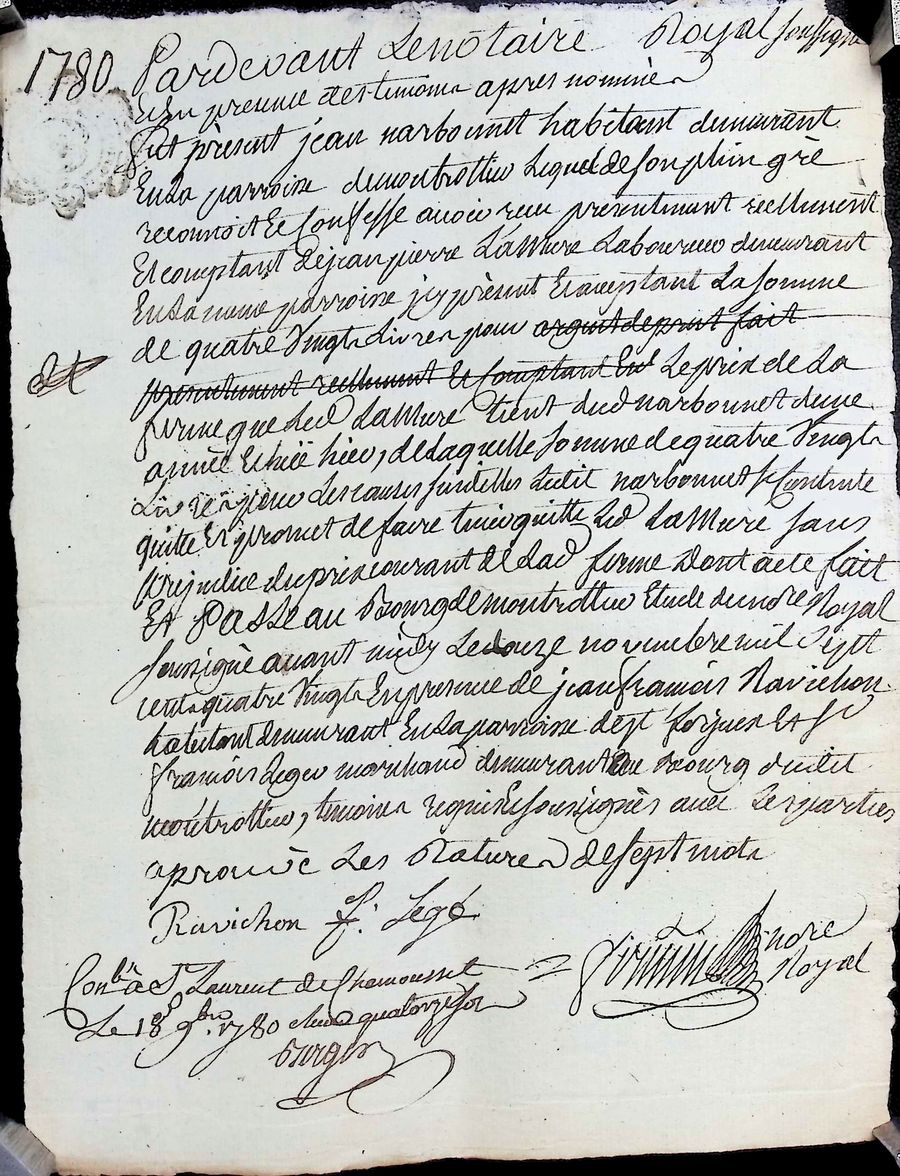 1780 Pardevant Le notaire Royal soussigné
et En presence des temoins apres nommés
fut présent jean narbonnet habitant demeurant
En La parroisse de montrottier Lequel de son plein gré
reconnoit Et Confesse avoir recu presentement reellement
Et comptant De jean pierre LaMure Laboureur demeurant
En La meme parroisse jcy présent Et acceptant La somme
de quatre Vingts Livres pour argent de pret fait
presentement reellement Et Comptant Le prix de La
ferme que Led LaMure tient dud narbonnet d'une
année Echüe hier, de Laquelle somme de quatre Vingts
Livres pour Les causes susdittes Ledit narbonnet se Contente
quitte Et promet de faire tenir quitte Led LaMure sans
prejudice du prix courant de Lad ferme Dont acte fait
Et Passé au Bourg de montrottier Etude du nore Royal
soussigné avant midy Le douze novembre mil Sept
cent quatre Vingts En presence de jean francois Ravichon
habitant demeurant En La parroisse de St forgeux Et Sr
francois Leger marchand demeurant au Bourg dudit
montrottier, temoins requis Et soussignés avec Les parties
aprouvé Les Ratures de sept mots
Ravichon f. Legé
nore
Royal
Conlé à St Laurent de Chamousset
Le 18 9bre 1780 quatorze sols